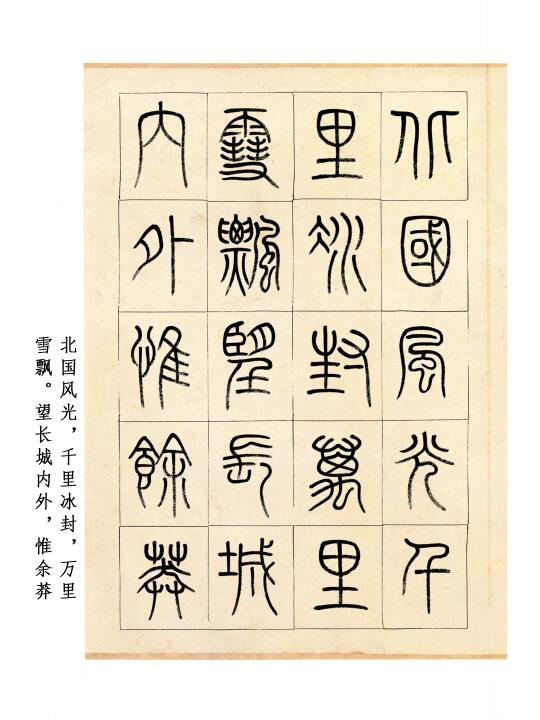 北國風光千
里冰封萬里
雪飄望長城
內外惟餘莽
北国风光，千里冰封，万里
雪飘。望长城内外，惟余莽